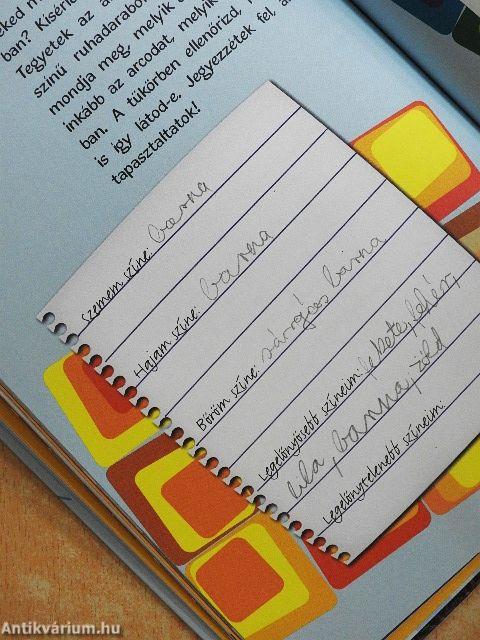 eked m
ban? Kísérle
Tegyetek az ar
színű ruhadarabo
mondja meg, melyik
inkább az arcodat, melyik
ban. A tükörben ellenőrizd,
is így látod-e. Jegyezzétek fel, a
tapasztaltatok!
Szemem színe: barna
Hajam színe: barna
Bőröm színe: sárgás bárna
Legelőnyösebb színeim: fekete, fehér,
lila, barna, zöld
Legelőnytelenebb színeim:
Antikvárium.hu